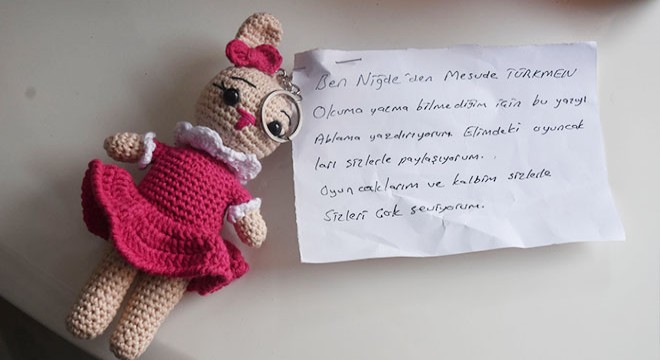 Ben Niğde'den Mesude TÜRKMEN
Okuma yazma bilmediğim için bu yazıyı
Ablama yazdırıyorum. Elimdeki oyuncak
ları sizlerle paylaşıyorum.
Oyuncaklarım ve kalbim sizlerle
Sizleri Çok seviyorum.